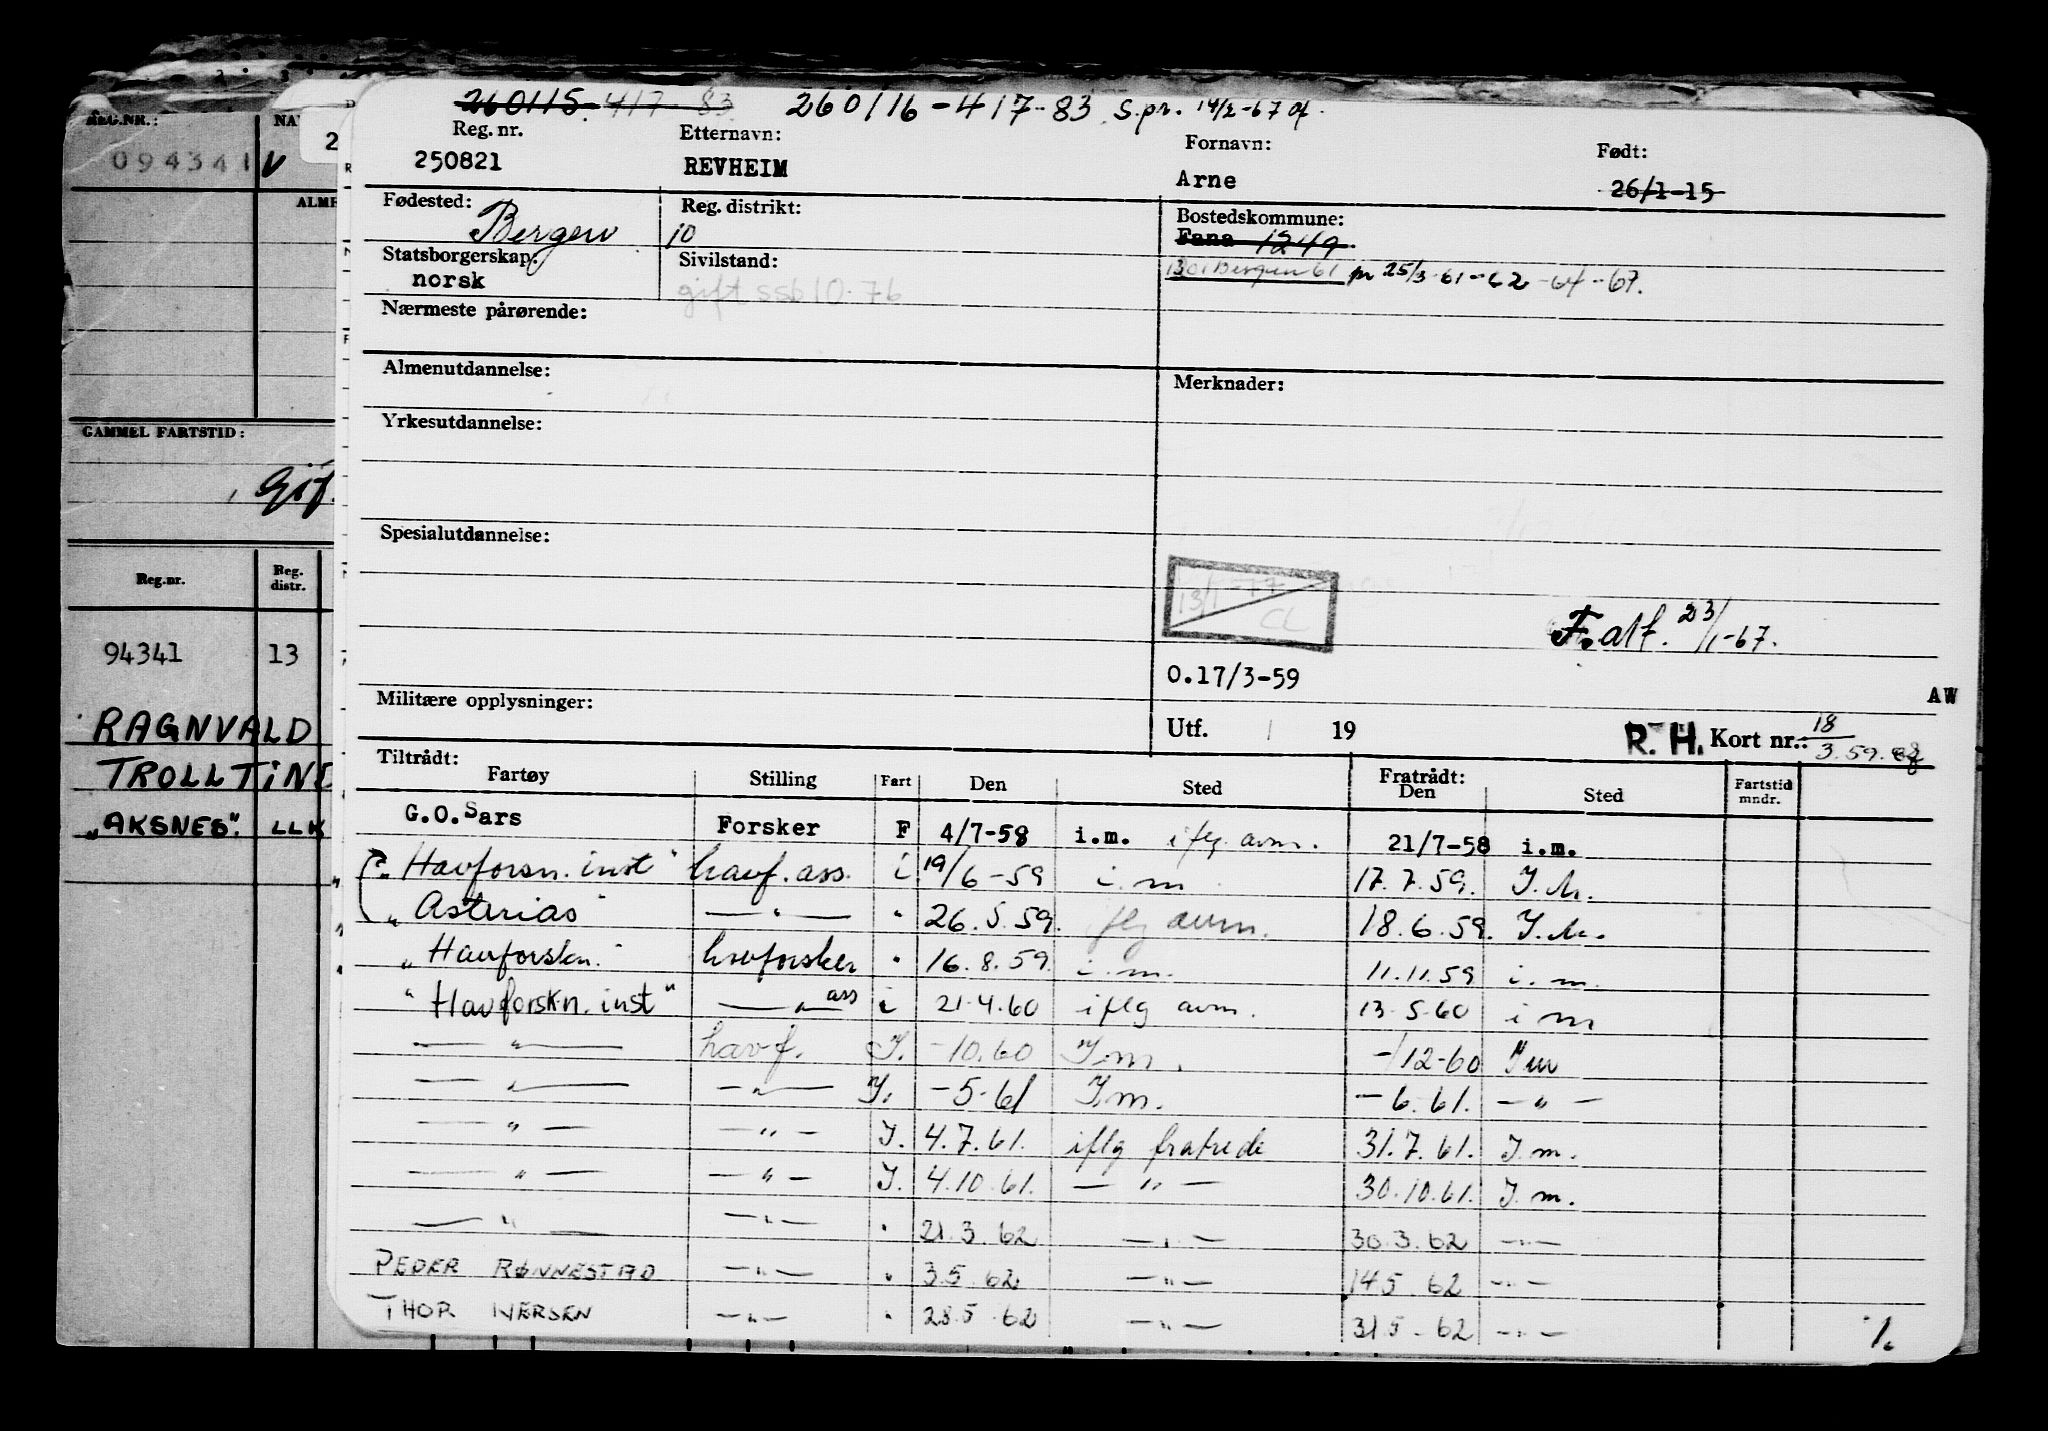 260115-417-83 260116-417-83 S.pr. 14/2-67
REG.NR.: NA
094341 V
ALME
GAMMEL FARTSTID:
Gif
Reg.nr. Reg. distr.
94341 13
RAGNVALD
TROLLTIND
"AKSNES". LLK
Reg. nr. Etternavn: Fornavn: Født:
250821 REVHEIM Arne 26/1-15
Fødested: Bergen Reg. distrikt: 10 Bostedskommune:
Fana 1249
Statsborgerskap: norsk Sivilstand: gift ssb 10-76 1301 Bergen 61 pr 25/3-61-62-64-67.
Nærmeste pårørende:
Almenutdannelse: Merknader:
Yrkesutdannelse:
Spesialutdannelse:
13/1-77 CL
F. att. 23/1-67.
O.17/3-59
AW
Militære opplysninger: Utf. / 19 R. H. Kort nr.: 18/3.59.
Tiltrådt: Fratrådt:
Fartøy Stilling Fart Den Sted Den Sted Fartstid mndr.
G.O.Sars Forsker F 4/7-58 i.m. iflg. avm. 21/7-58 i.m.
"Havforsn. inst" havf. ass. i. 19/6-59 i.m. 17.7.59. I.M.
"Asterias" —"— " 26.5.59. iflg avm. 18.6.59. I.M.
"Havforskn." havforsker " 16.8.59. i.m. 11.11.59 i.m.
"Havforskn. inst" —"— ass i 21.4.60 iflg avm. 13.5.60 i m
—"— havf. I. -10.60 I.m. -/12-60 I m
—"— —"— I. -5-61 I.m. -6.61. —"—
—"— —"— I. 4.7.61. iflg fratrede 31.7.61. I.m.
—"— —"— I. 4.10.61. —"— 30.10.61. I.m.
—"— —"— " 21.3.62 —"— 30.3.62 —"—
PEDER RØNNESTAD —"— " 3.5.62 —"— 14.5.62 —"—
THOR IVERSEN —"— " 28.5.62 —"— 31.5.62 —"—
1.